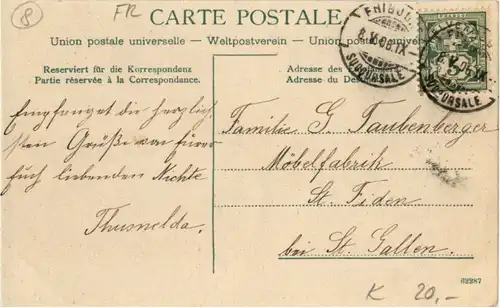 8
FR
CARTE POSTALE
Union postale universelle. – Weltpostverein – Union postale universelle
Reserviert für die Korrespondenz
Partie réservée à la Correspondance.
Adresse des
Adresse du Des
FRIBOU
8.V.06.IX
SUCCURSALE
8.V.06.IX
SUCCURSALE
Empfanget die herzlich-
sten Grüße von Eurer
Euch liebenden Nichte
Thusnelda.
Familie G. Taubenberger
Möbelfabrik
St. Fiden
bei St. Gallen.
62287
K 20,-